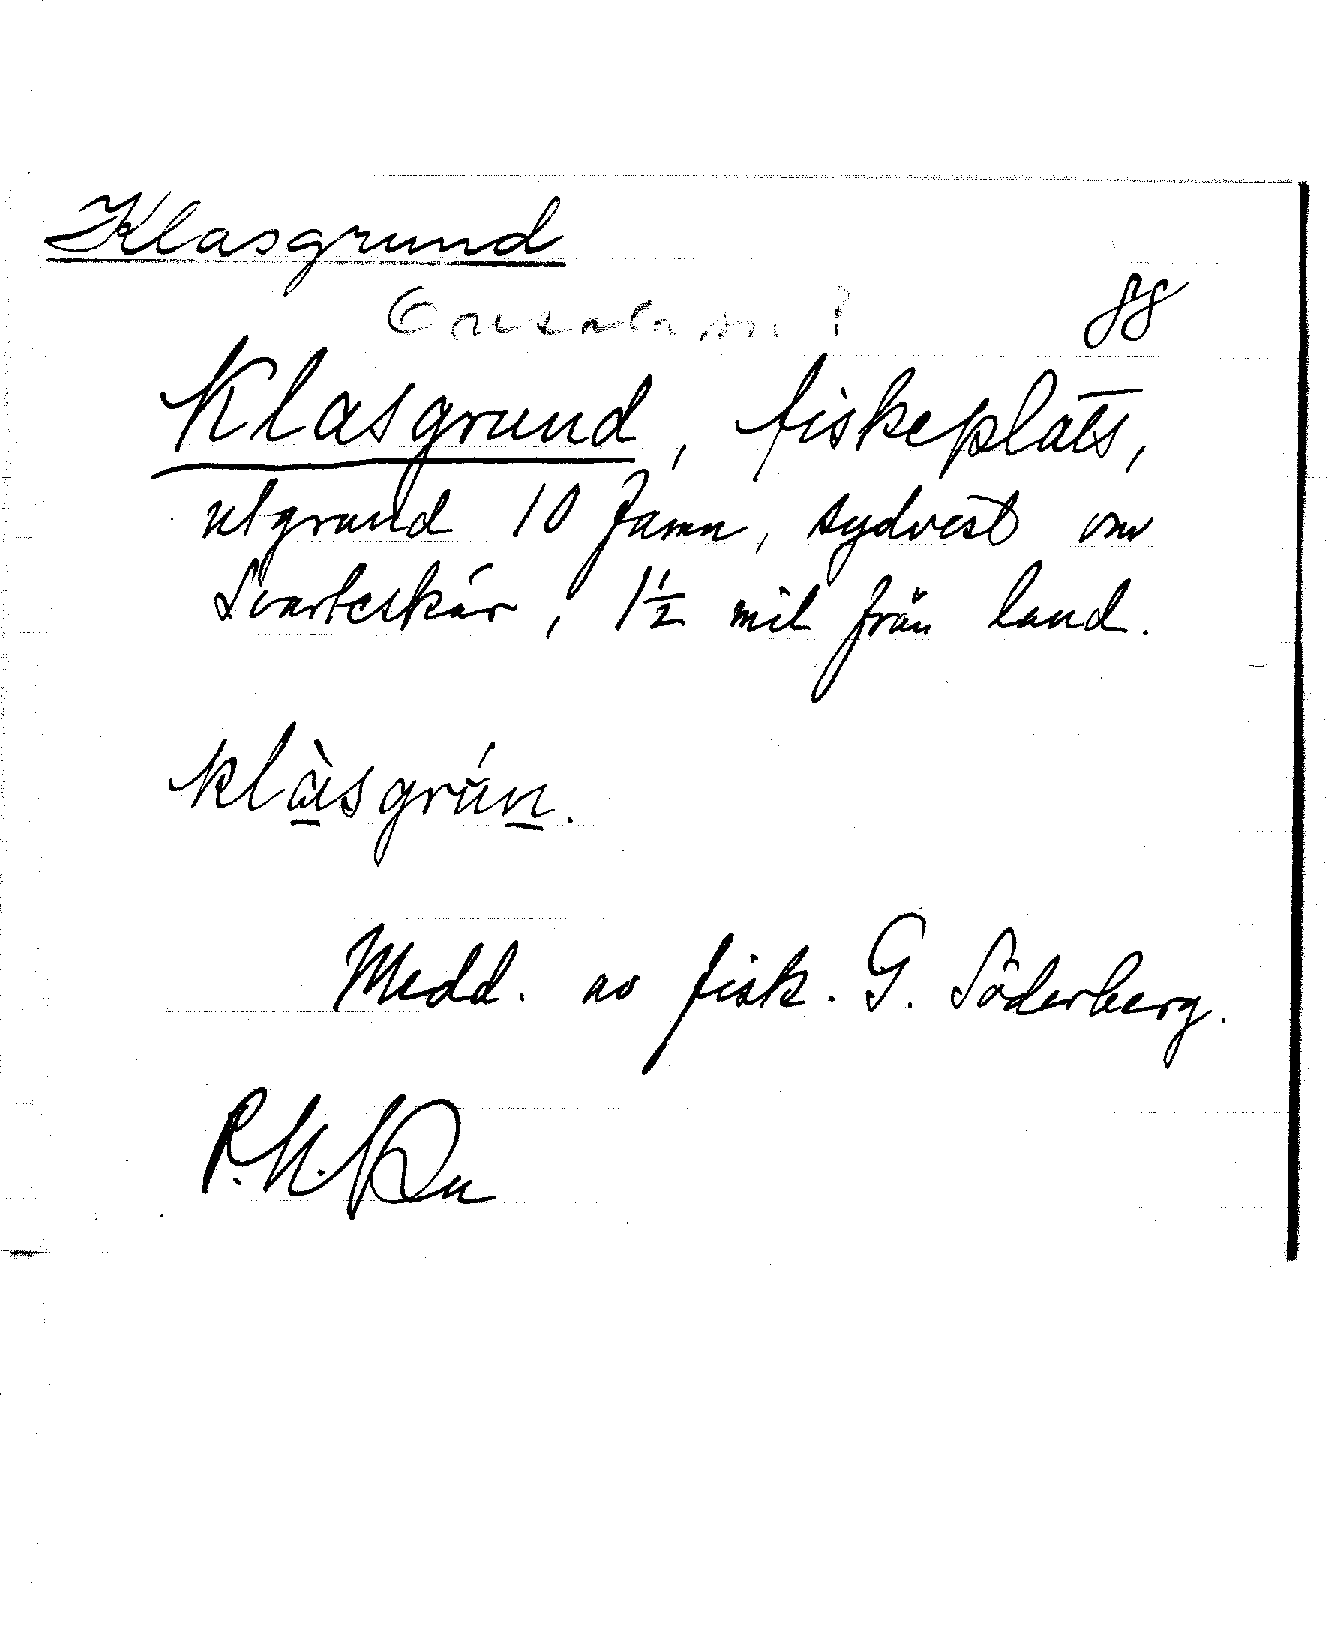 Klasgrund
88
Klasgrund, fiskeplats,
utgrund 10 famn, sydvest om
Svarteskär, 1½ mil från land.
klàsgrún.
Medd. av fisk. G. Söderberg.